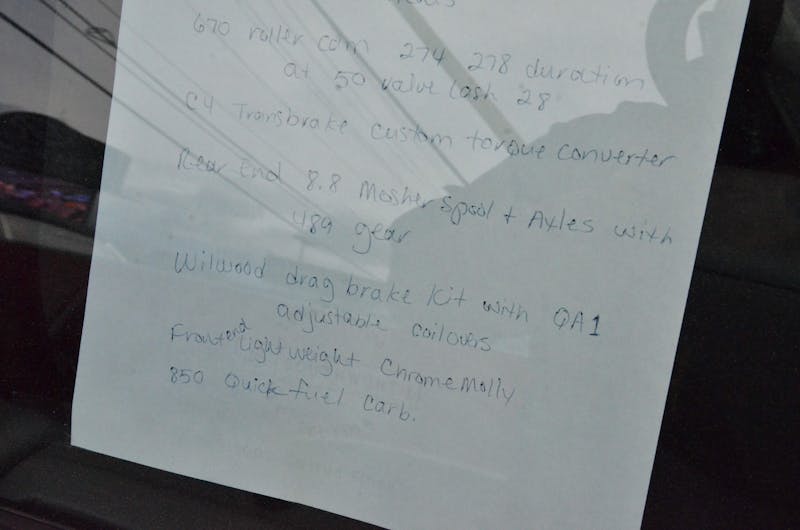 670 roller cam 274 278 duration
at 50 valve lash 28
C4 Transbrake custom torque converter
Rear End 8.8 Mosher Spool + Axles with
489 gear
Wilwood drag brake kit with QA1
adjustable coilovers
Front end Light weight ChromeMolly
850 Quick fuel Carb.